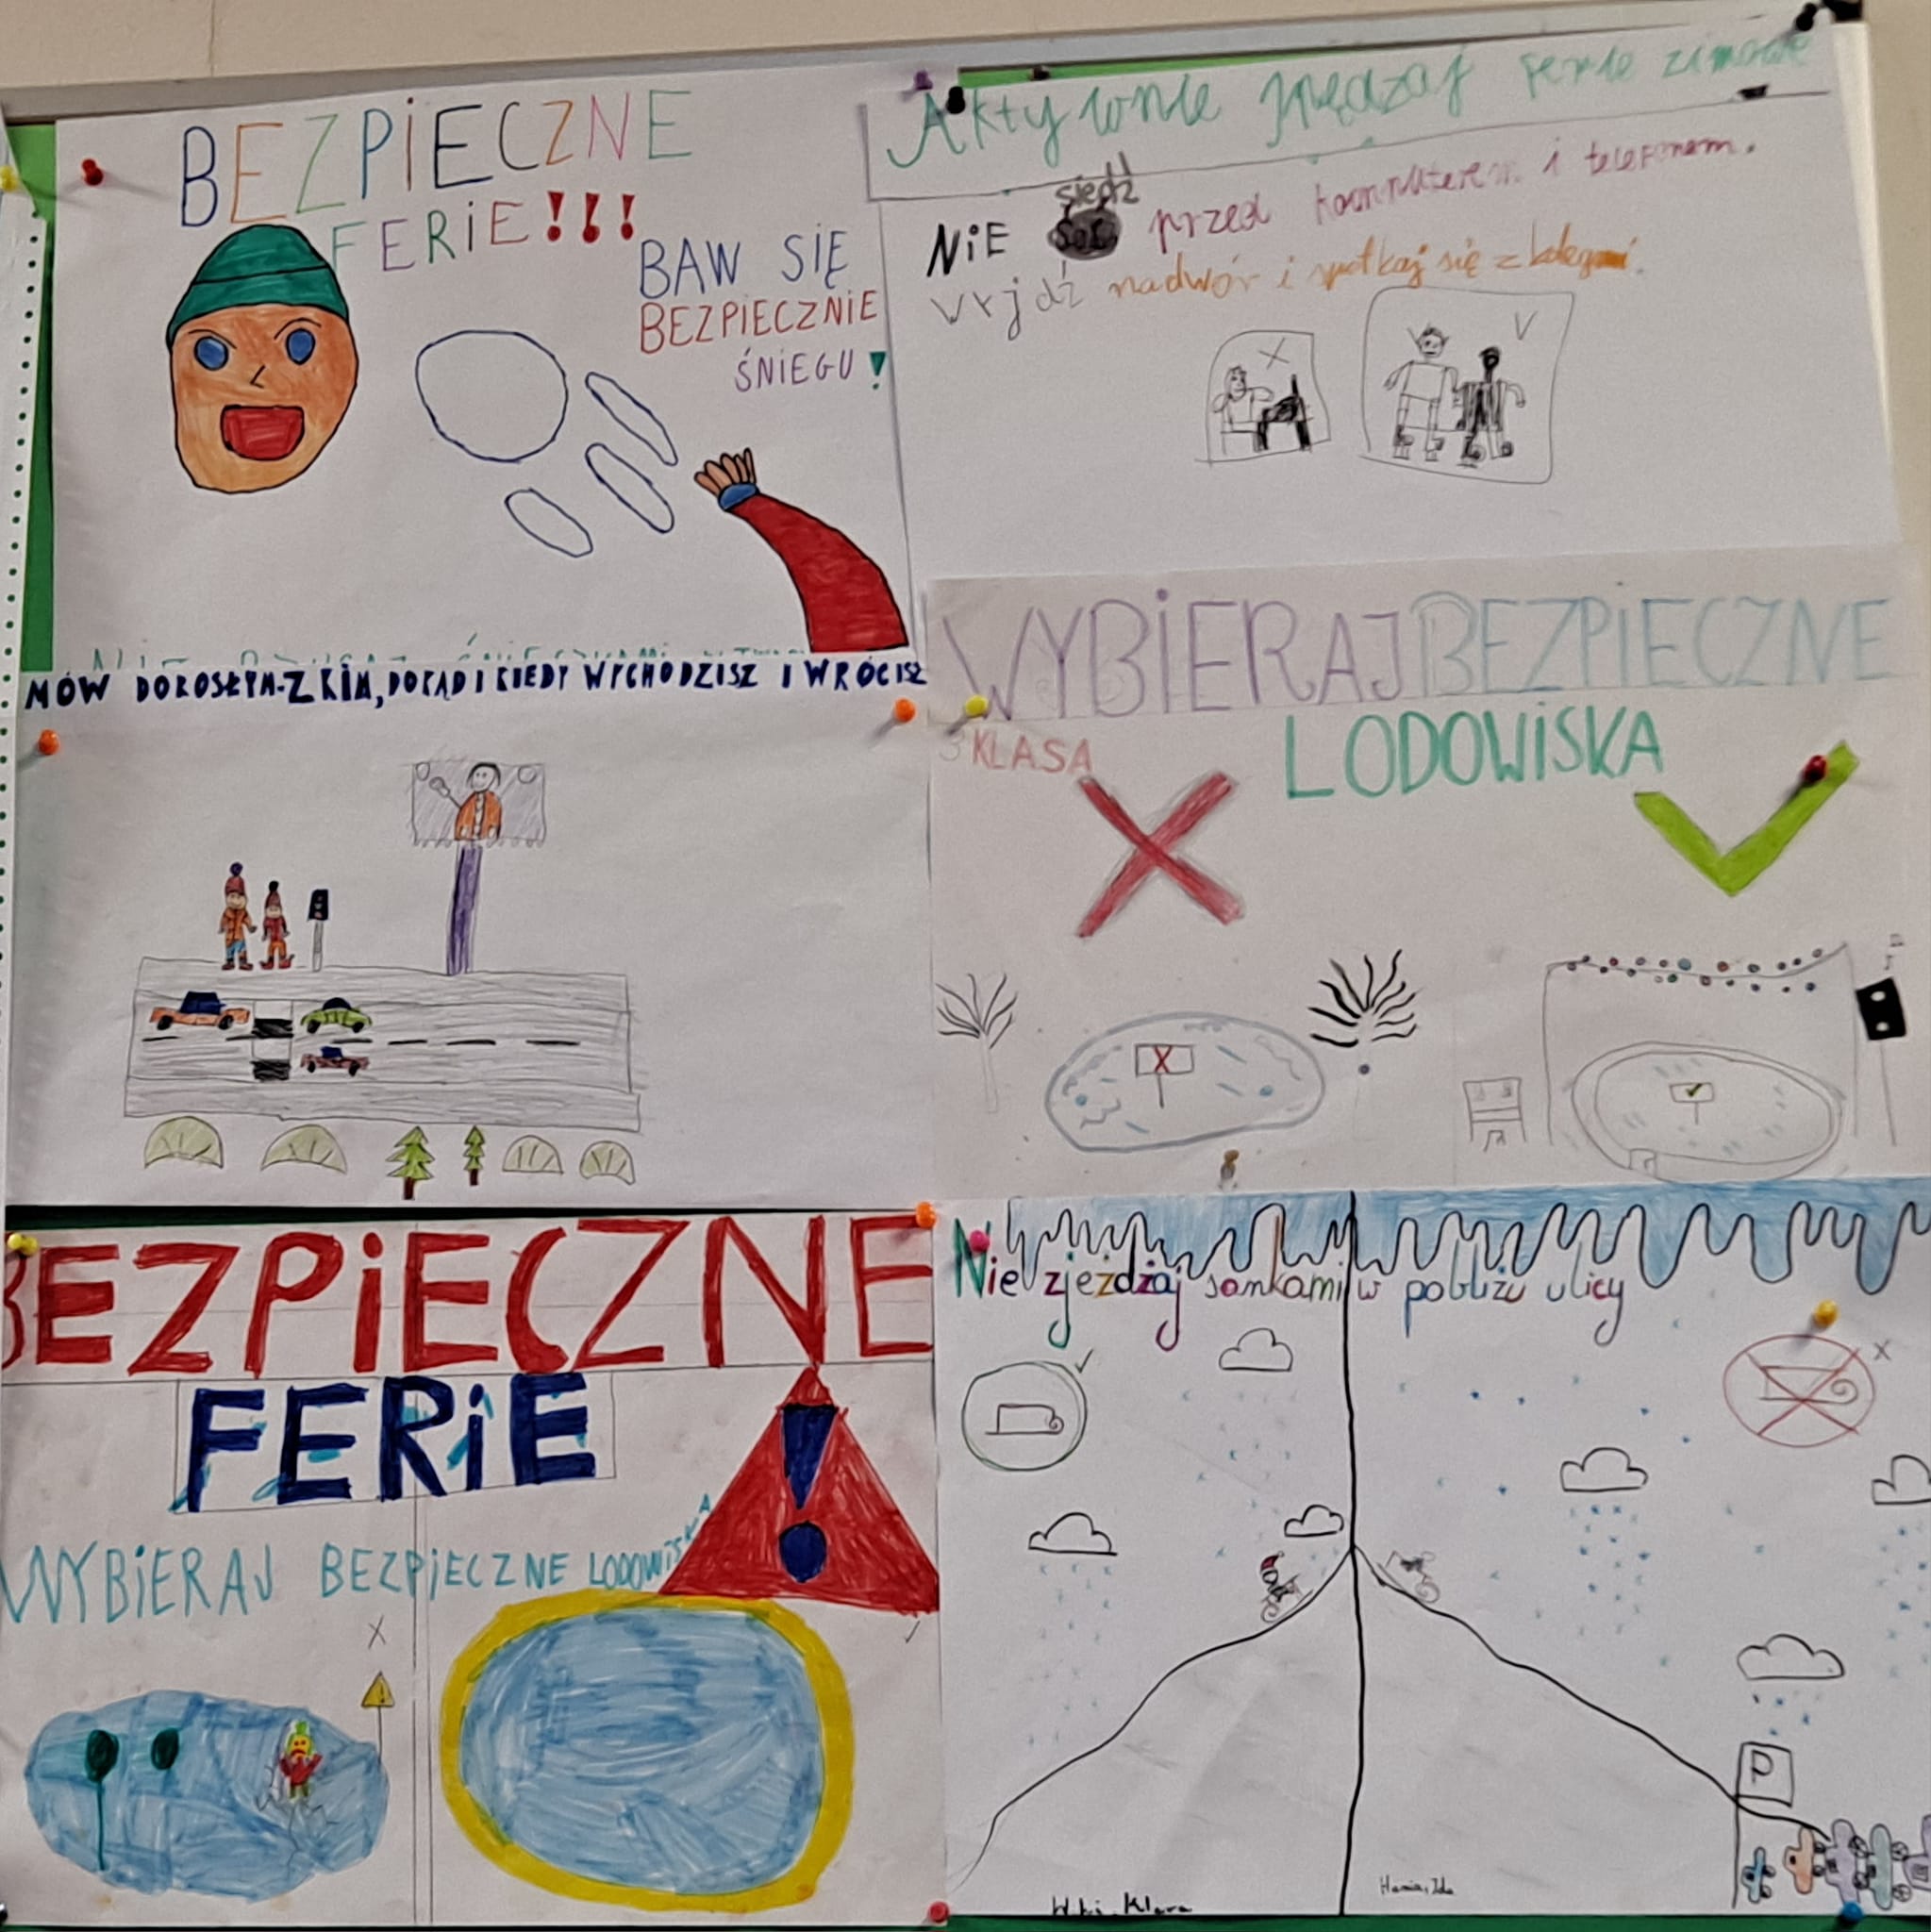 BEZPIECZNE
FERIE!!!
BAW SIĘ
BEZPIECZNIE
ŚNIEGU!
Aktywnie spędzaj ferie zimowe
siedź
NIE przed komputerem i telefonem.
Wyjdź nadwór i spotkaj się z
X
V
MÓW DOROSŁYM-Z KIM, DOKĄD I KIEDY WYCHODZISZ I WRÓCISZ
WYBIERAJ BEZPIECZNE
3 KLASA
LODOWISKA
X
BEZPIECZNE
FERIE
!
WYBIERAJ BEZPIECZNE LODOWISKA
X
Nie zjeżdżaj sankami w pobliżu ulicy
X
P
Hania, Ida
Klara